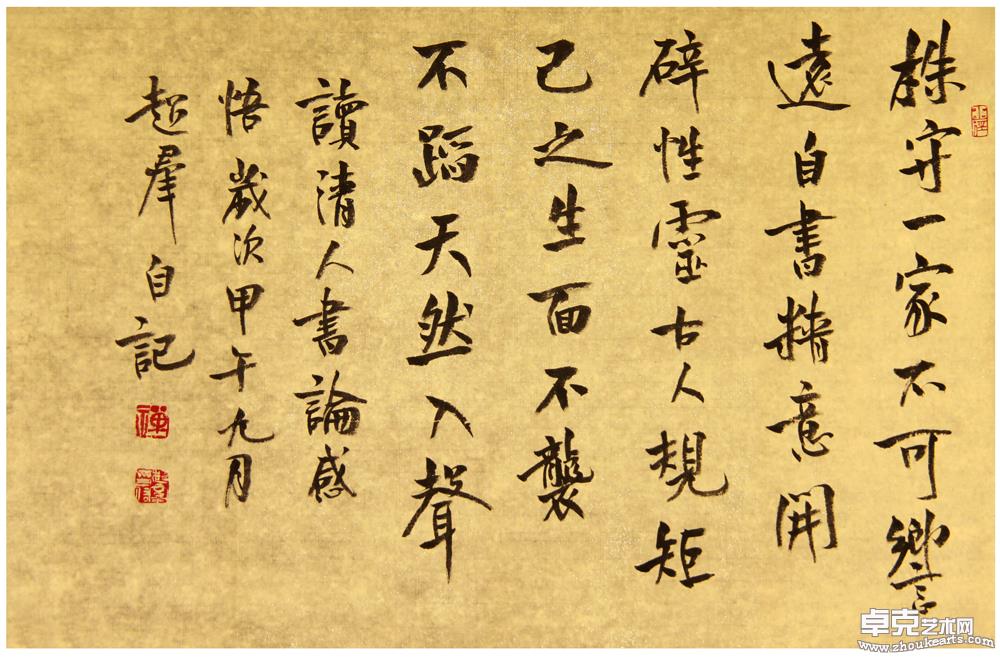 株守一家不可響
遠自書精意開
辟性靈古人規矩
己之生面不襲
不蹈天然入聲
讀清人書論感
悟歲次甲午九月
超群自記
卓克艺术网
www.zhoukearts.com